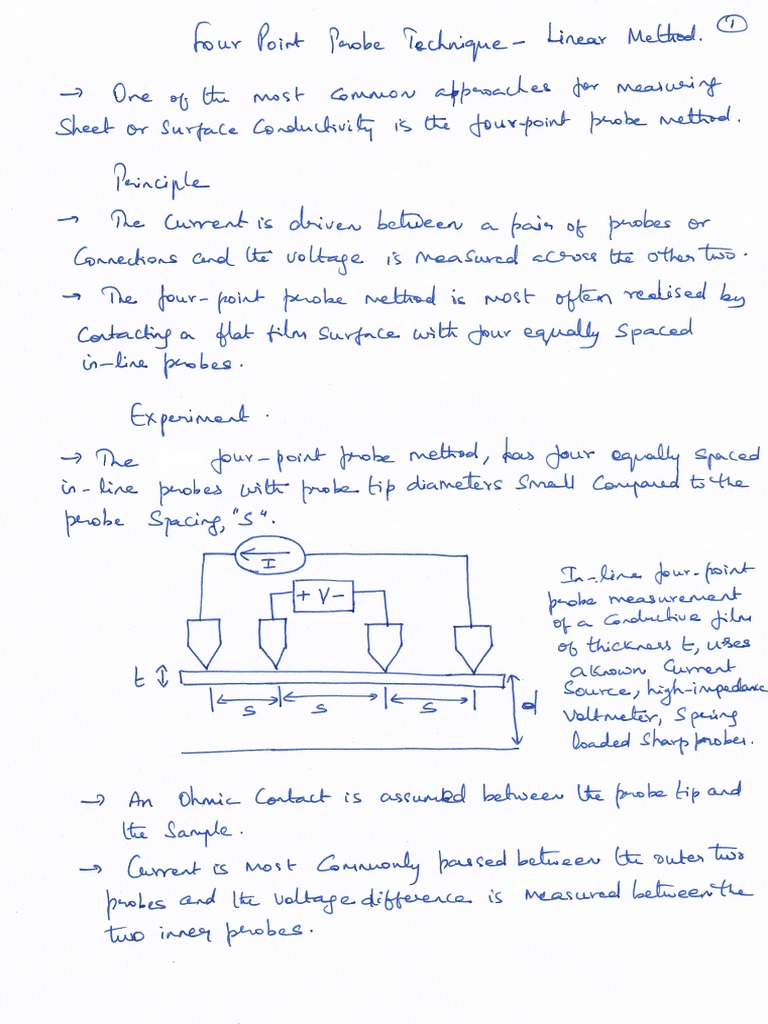 Four Point Probe Technique - Linear Method. 1
→ One of the most common approaches for measuring
Sheet or Surface Conductivity is the four-point probe method.
Principle
→ The Current is driven between a pair of probes or
Connections and the voltage is measured across the other two.
→ The four-point probe method is most often realised by
Contacting a flat film surface with four equally spaced
in-line probes.
Experiment.
→ The four-point probe method, has four equally spaced
in-line probes with probe tip diameters small compared to the
probe Spacing, "S".
I
+ V -
t
S S S
d
In-line four-point
probe measurement
of a conductive film
of thickness t, uses
a known Current
Source, high-impedance
Voltmeter, Spring
loaded Sharp probes.
→ An Ohmic Contact is assumed between the probe tip and
the Sample.
→ Current is most Commonly passed between the outer two
probes and the voltage difference is measured between the
two inner probes.